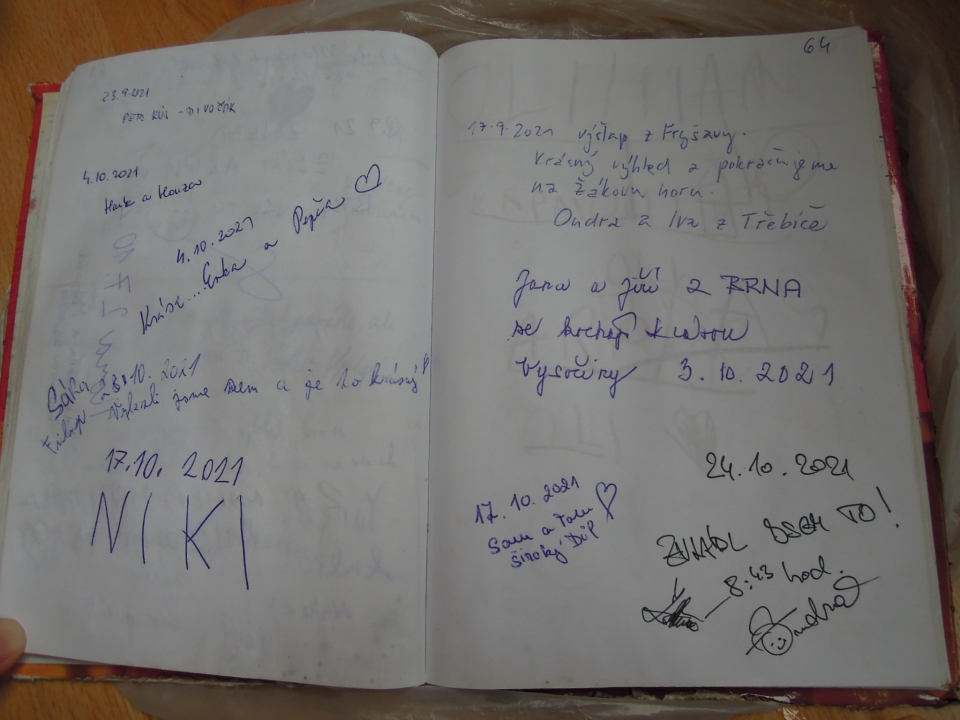 23.9.2021
4.10.2021
4.10.2021
Krása... Erka a Pepča
Sára
Filip
3.10.2021
Vylezli jsme sem a je to krásný
17.10. 2021
NIKI
64
17.9.2021 výšlap z Fryšavy.
Krásný výhled a pokračujeme
na Žákovu horu.
Ondra a Iva z Třebíče
Jana a Jiří z BRNA
se kochají krásou
Vysočiny 3.10.2021
17.10.2021
Sam a Tom
Široký Důl
24.10.2021
ZVLÁDL JSEM TO!
8:43 hod.
Ondra